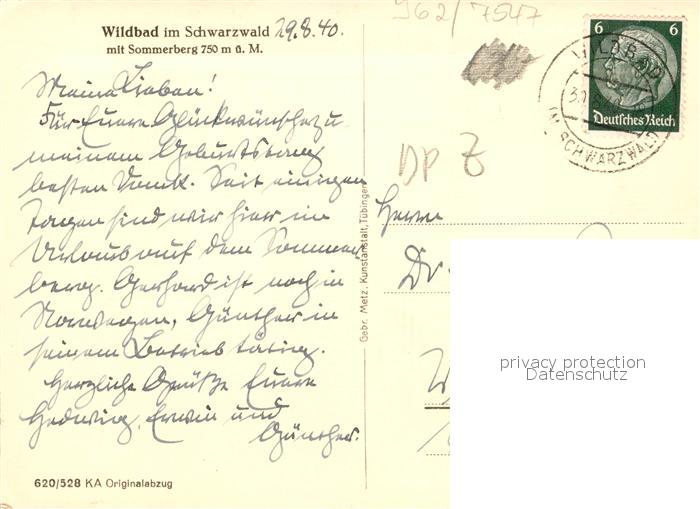 Wildbad im Schwarzwald 29.8.40.
mit Sommerberg 750 m ü. M.
Meine Lieben!
Für Eure Glückwünsche zu
meinem Geburtstag
besten Dank. Seit einigen
Tagen sind wir hier im
Urlaub auf dem Sommer
berg. Gerhard ist noch in
Norwegen, Günther in
seinem Betrieb tätig.
Herzliche Grüße Eure
Hedwig, Erwin und
Günther.
620/528 KA Originalabzug
Gebr. Metz, Kunstanstalt, Tübingen
962/7547
DP Z
6 6
Deutsches Reich
WILDBAD
IM SCHWARZWALD
Herrn
Dr.
privacy protection
Datenschutz